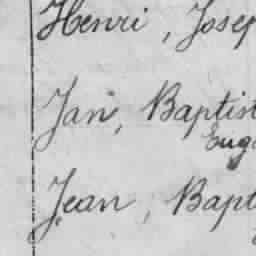 Henri, Josep
Jan, Baptist
Eug
Jean, Bapt